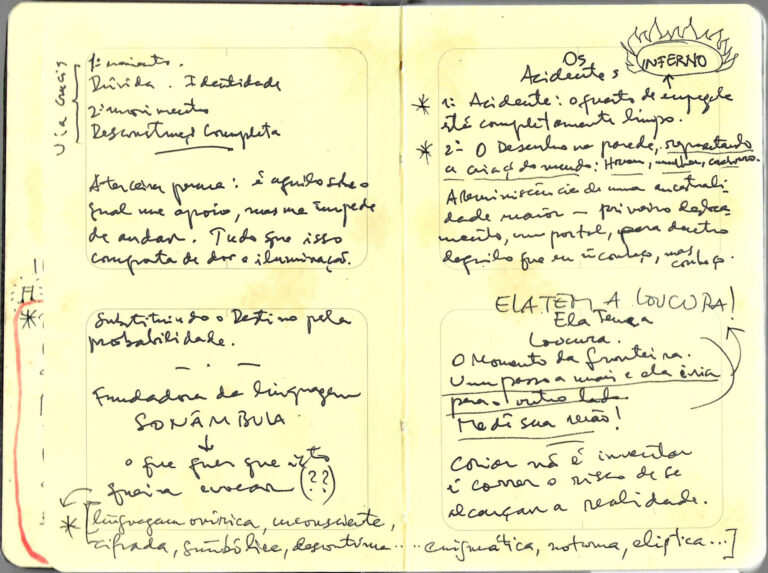 Via Crucis
1º movimento.
Dúvida. Identidade
2º movimento
Desconstruçã Completa
A terceira perna: é aquilo sbre o
qual me apoio, mas me impede
de andar. Tudo que isso
comporta de dor e iluminação.
* Substituindo o Destino pela
probabilidade.
Fundadora da linguagem
SONÂMBULA
↓
o que quer que isto
queira evocar (??)
* [linguagem onírica, inconsciente,
cifrada, simbólica, descontínua...
Os
Acidentes
INFERNO
* 1º Acidente: o quarto de empregada
está completamente limpo.
* 2º O Desenho na parede, representando
a criaç do mundo: Homem, mulher, cachorro.
A Reminiscência de uma ancestrali-
dade maior – primeiro desloca-
mento, um portal, para dentro
daquilo que eu ñ conheço, mas
conheço.
ELA TEM A LOUCURA!
Ela Tem a
Loucura.
O Momento da fronteira.
Um passo a mais e ela iria
para o outro lado
Medi sua razão!
Criar nã é inventar
é correr o risco de se
alcançar a realidade.
enigmática, noturna, elíptica...]